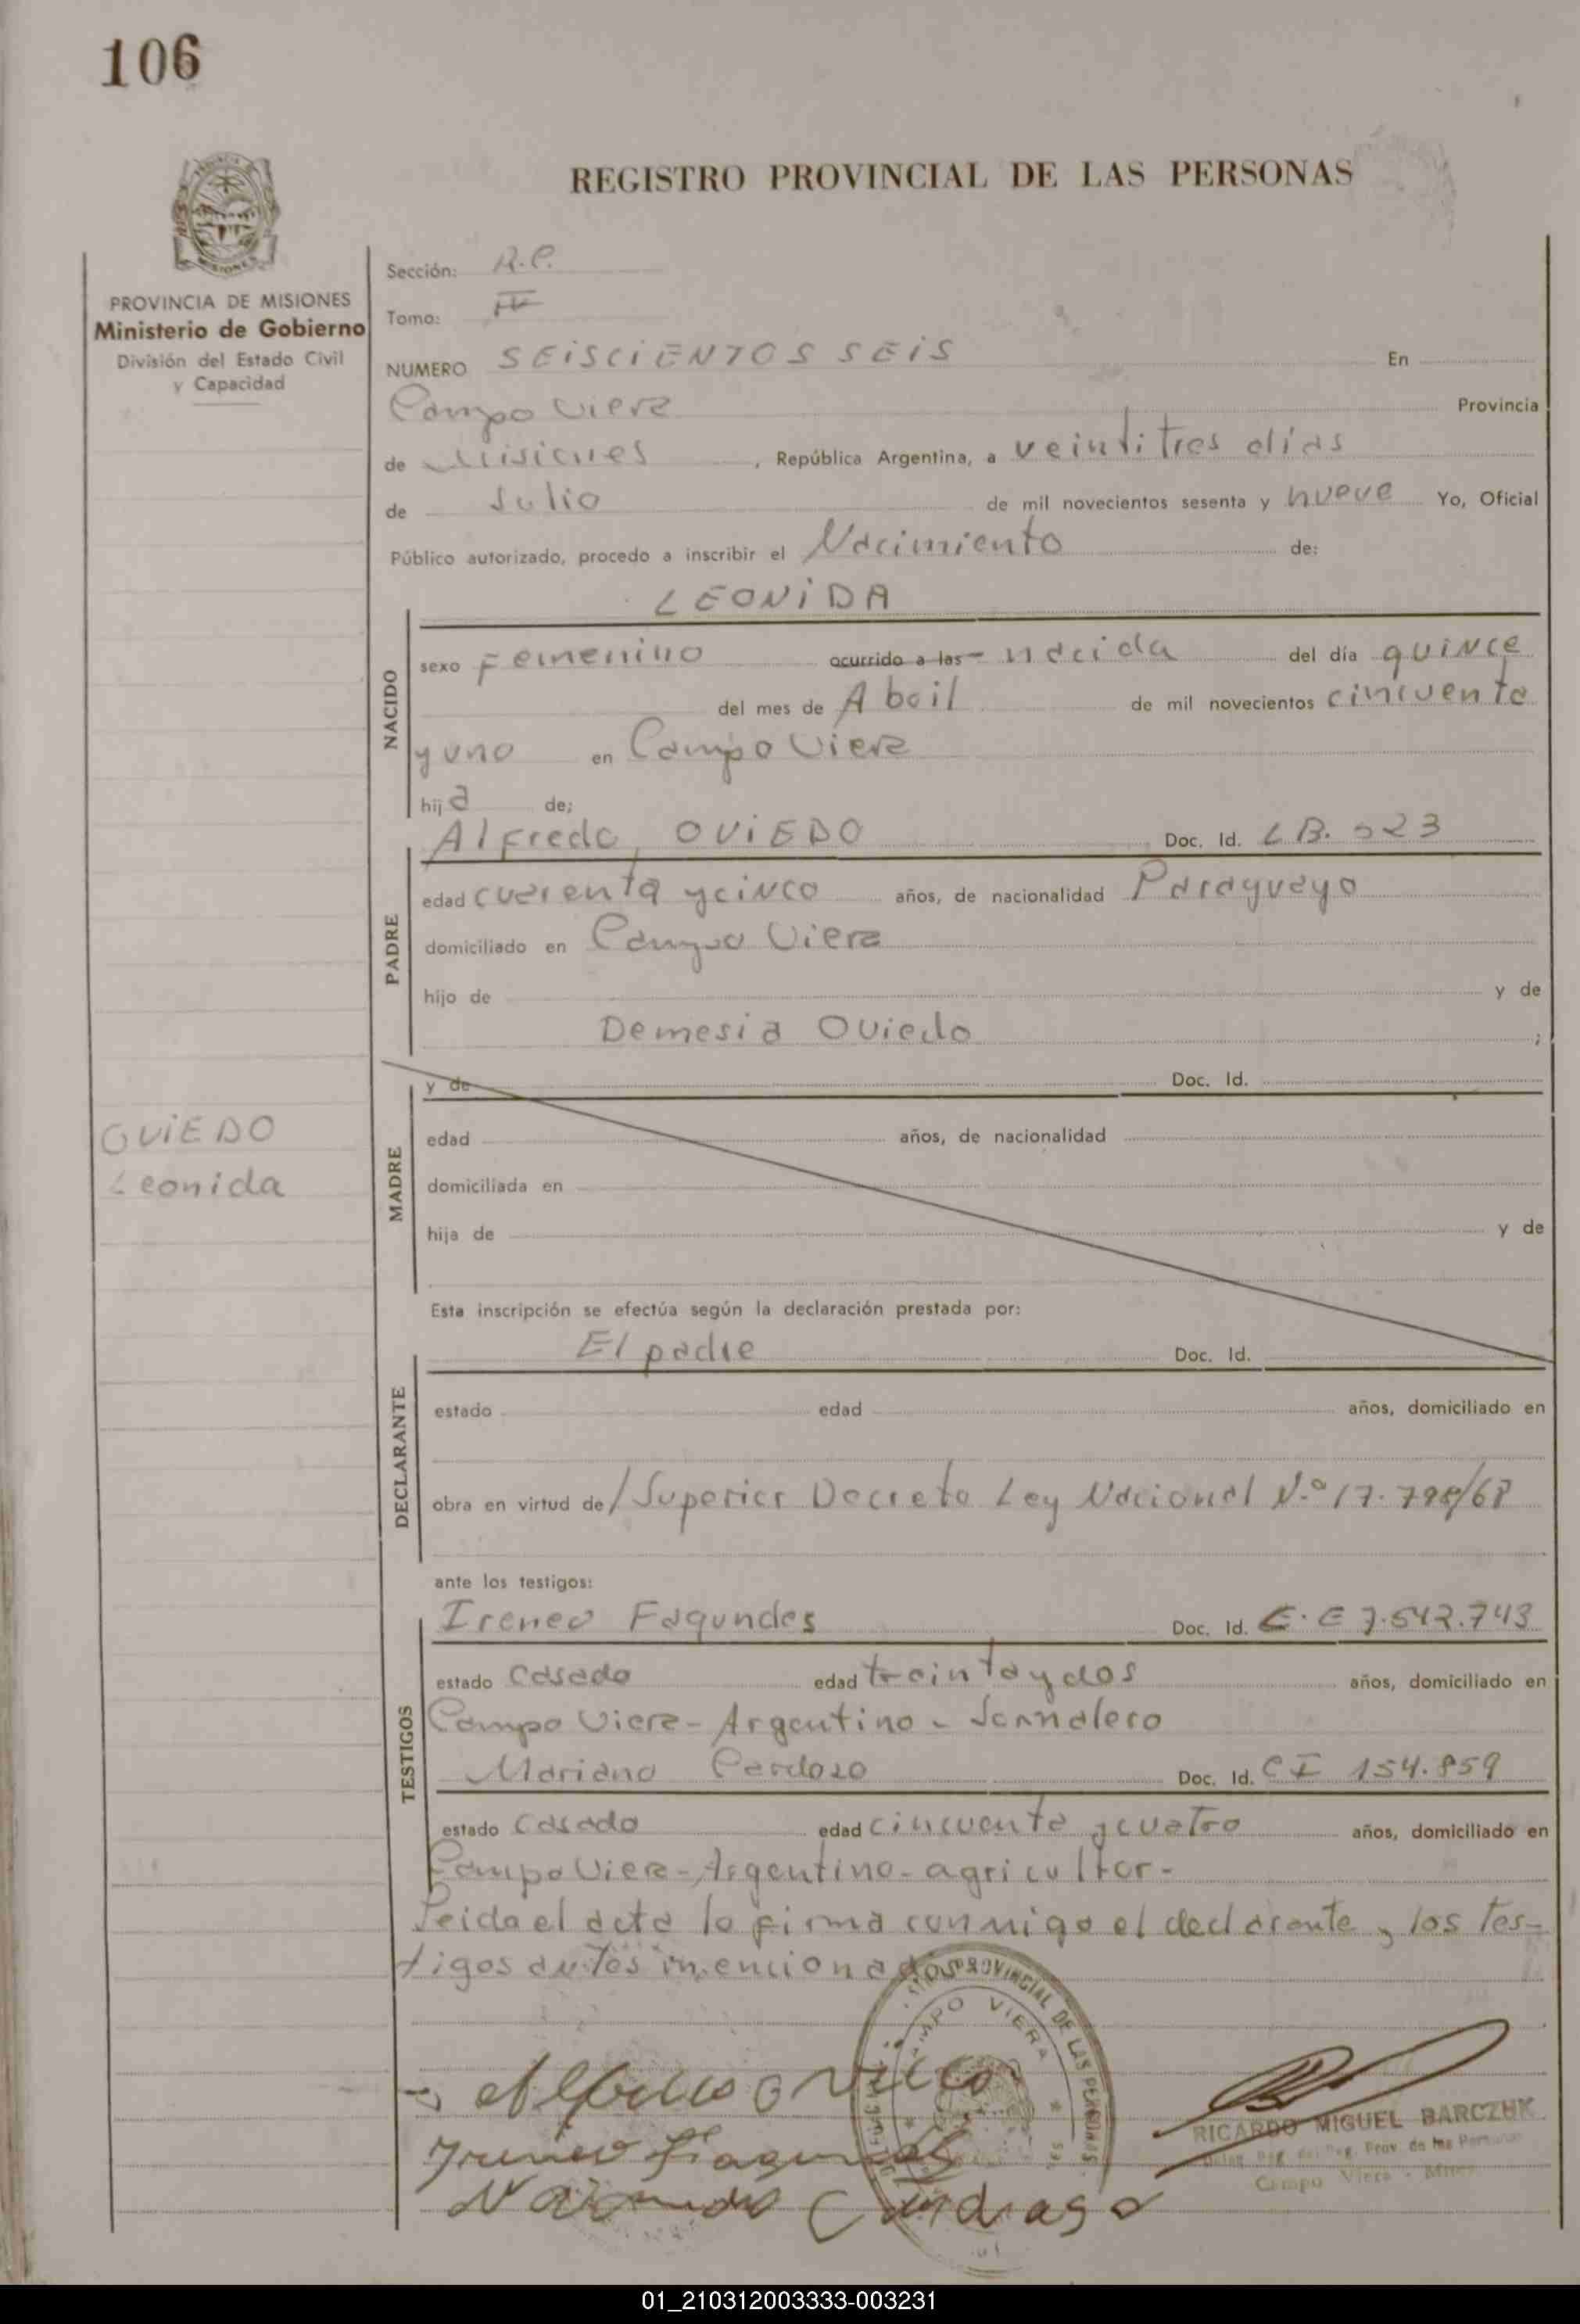 106
REGISTRO PROVINCIAL DE LAS PERSONAS
PROVINCIA DE MISIONES
Ministerio de Gobierno
División del Estado Civil
y Capacidad
Sección: R.C.
Tomo: IV
NUMERO SEISCIENTOS SEIS En
Campo Viera Provincia
de Misiones, República Argentina, a veintitres días
de Julio de mil novecientos sesenta y nueve Yo, Oficial
Público autorizado, procedo a inscribir el Nacimiento de:
NACIDO
LEONIDA
sexo Femenino ocurrido a las - nacida del día quince
del mes de Abril de mil novecientos cincuenta
y uno en Campo Viera
hija de;
PADRE
Alfredo, OVIEDO Doc. Id. LB. 523
edad cuarenta y cinco años, de nacionalidad Paraguayo
domiciliado en Campo Viera
hijo de y de
Demesia Oviedo ;
MADRE
y de Doc. Id.
edad años, de nacionalidad
domiciliada en
hija de y de
OVIEDO
Leonida
Esta inscripción se efectúa según la declaración prestada por:
DECLARANTE
El padre Doc. Id.
estado edad años, domiciliado en
obra en virtud de / Superior Decreto Ley Nacional N.º 17.798/68
ante los testigos:
TESTIGOS
Ireneo Fagundes Doc. Id. 7.542.743
estado Casado edad treinta y dos años, domiciliado en
Campo Viera - Argentino - Jornalero
Mariano Cardozo Doc. Id. CI 154.859
estado Casado edad cincuenta y cuatro años, domiciliado en
Campo Viera - Argentino - agricultor -
Leida el acta la firma conmigo el declarante y los tes-
tigos antes mencionados
PROVINCIAL DE LAS PERSONAS
CAMPO VIERA
RICARDO MIGUEL BARCZUK
Reg. Prov. de las Personas
Campo Viera - Mnes.
01_210312003333-003231